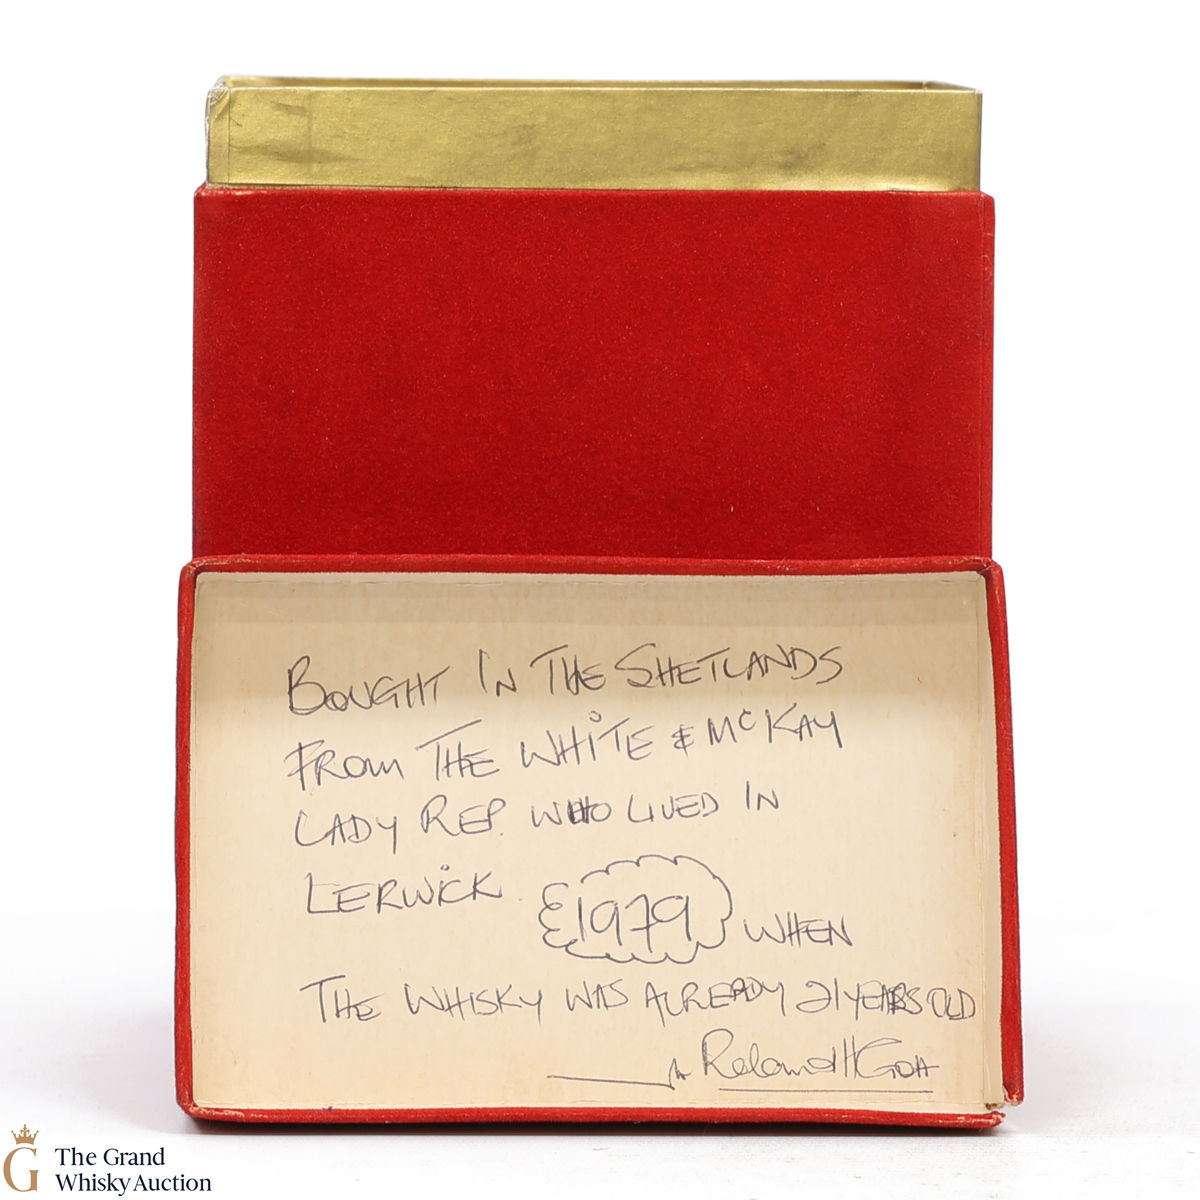 BOUGHT IN THE SHETLANDS
FROM THE WHITE & McKAY
LADY REP. WHO LIVED IN
LERWICK. 1979 WHEN
THE WHISKY WAS ALREADY 21 YEARS OLD
G
The Grand
Whisky Auction